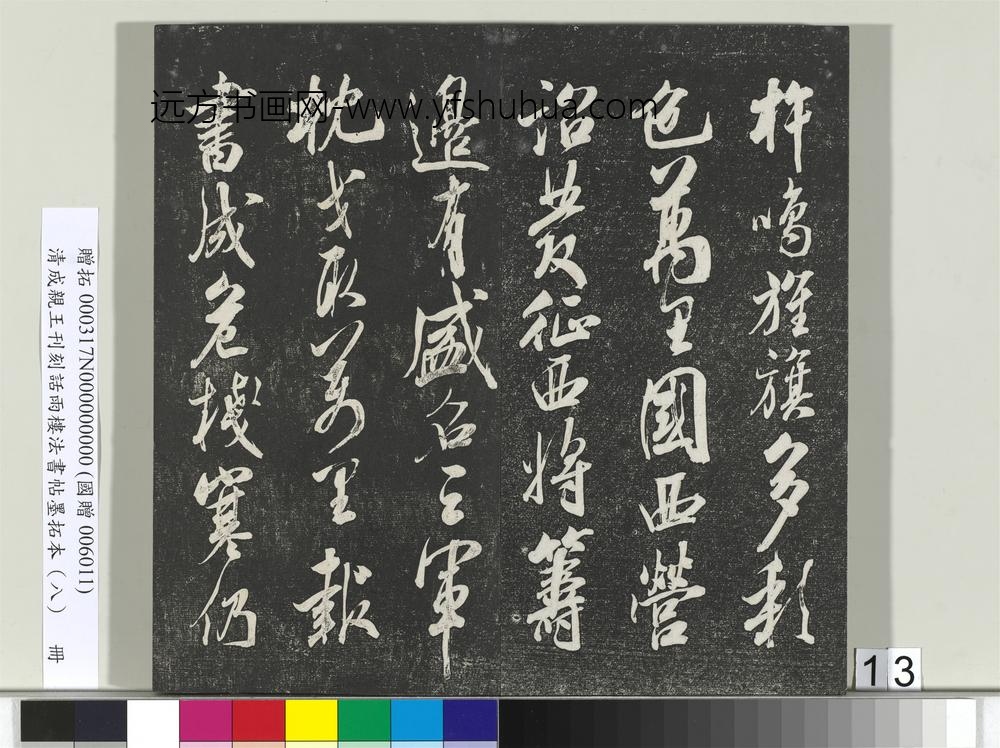 杵鳴旌旗多彩
色萬里國西營
詔發征西將籌
邊有盛名三軍
枕戈取萬里報
書成危棧寒仍
远方书画网-www.yfshuhua.com
贈拓 000317N000000000 (國贈 006011)
清成親王刊刻話雨樓法書帖墨拓本（八） 冊
13